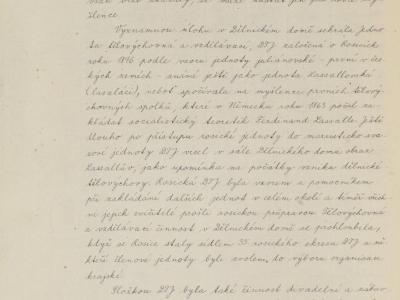 šlence
Významnou úlohu v Dělnickém domě sehrála jedno-
ta tělovýchovná a vzdělávací, DTJ založená v Rosicích
roku 1896 podle vzoru jednoty juliánovské - první v če-
kých zemích - míněné ještě jako jednota Lassallovská
(lasaláci), neboť spočívala na myšlence prvních tělový-
chovných spolků, které v Německu roku 1863 počal za-
kládat socialistický teoretik Ferdinand Lassalle. Ještě
dlouho po přístupu rosické jednoty do marxistického sva-
zové jednoty DTJ visel v sále Dělnického domu obraz
Lassallův, jako upomínka na počátky vzniku dělnické
tělovýchovy. Rosická DTJ byla vzorem a pomocníkem
při zakládání dalších jednot v celém okolí a téměř všich-
ni jejich cvičitelé prošli rosickou průpravou. Tělovýchovná
a vzdělávací činnost v Dělnickém domě se prohloubila,
když se Rosice staly sídlem 35. rosického okresu DTJ a ně-
kteří členové jednoty byli zvoleni do výboru organisace
krajské
Složkou DTJ byla také činnost divadelní a zábav-